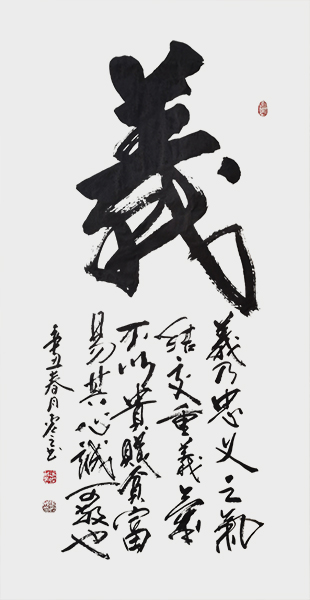 義
義乃忠义之氣
結交重義氣
不以貴賤貧富
易其心誠可敬也
辛丑春月